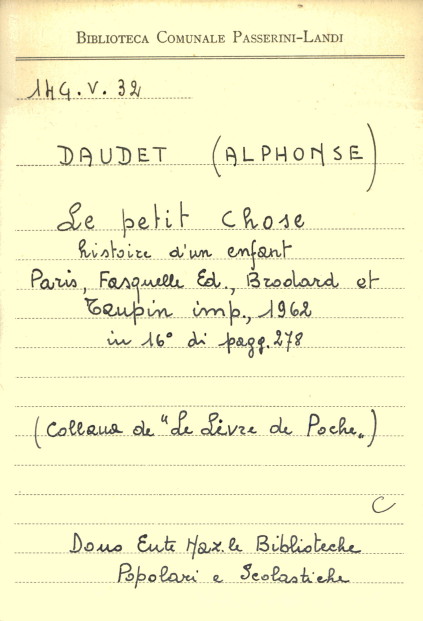 BIBLIOTECA COMUNALE PASSERINI-LANDI
14G.V.32
DAUDET (ALPHONSE)
Le petit chose
histoire d'un enfant
Paris, Fasquelle Ed., Brodard et
Taupin imp., 1962
in 16° di pagg. 278
(Collana de "Le Livre de Poche„)
C
Dono Ente Naz.le Biblioteche
Popolari e Scolastiche